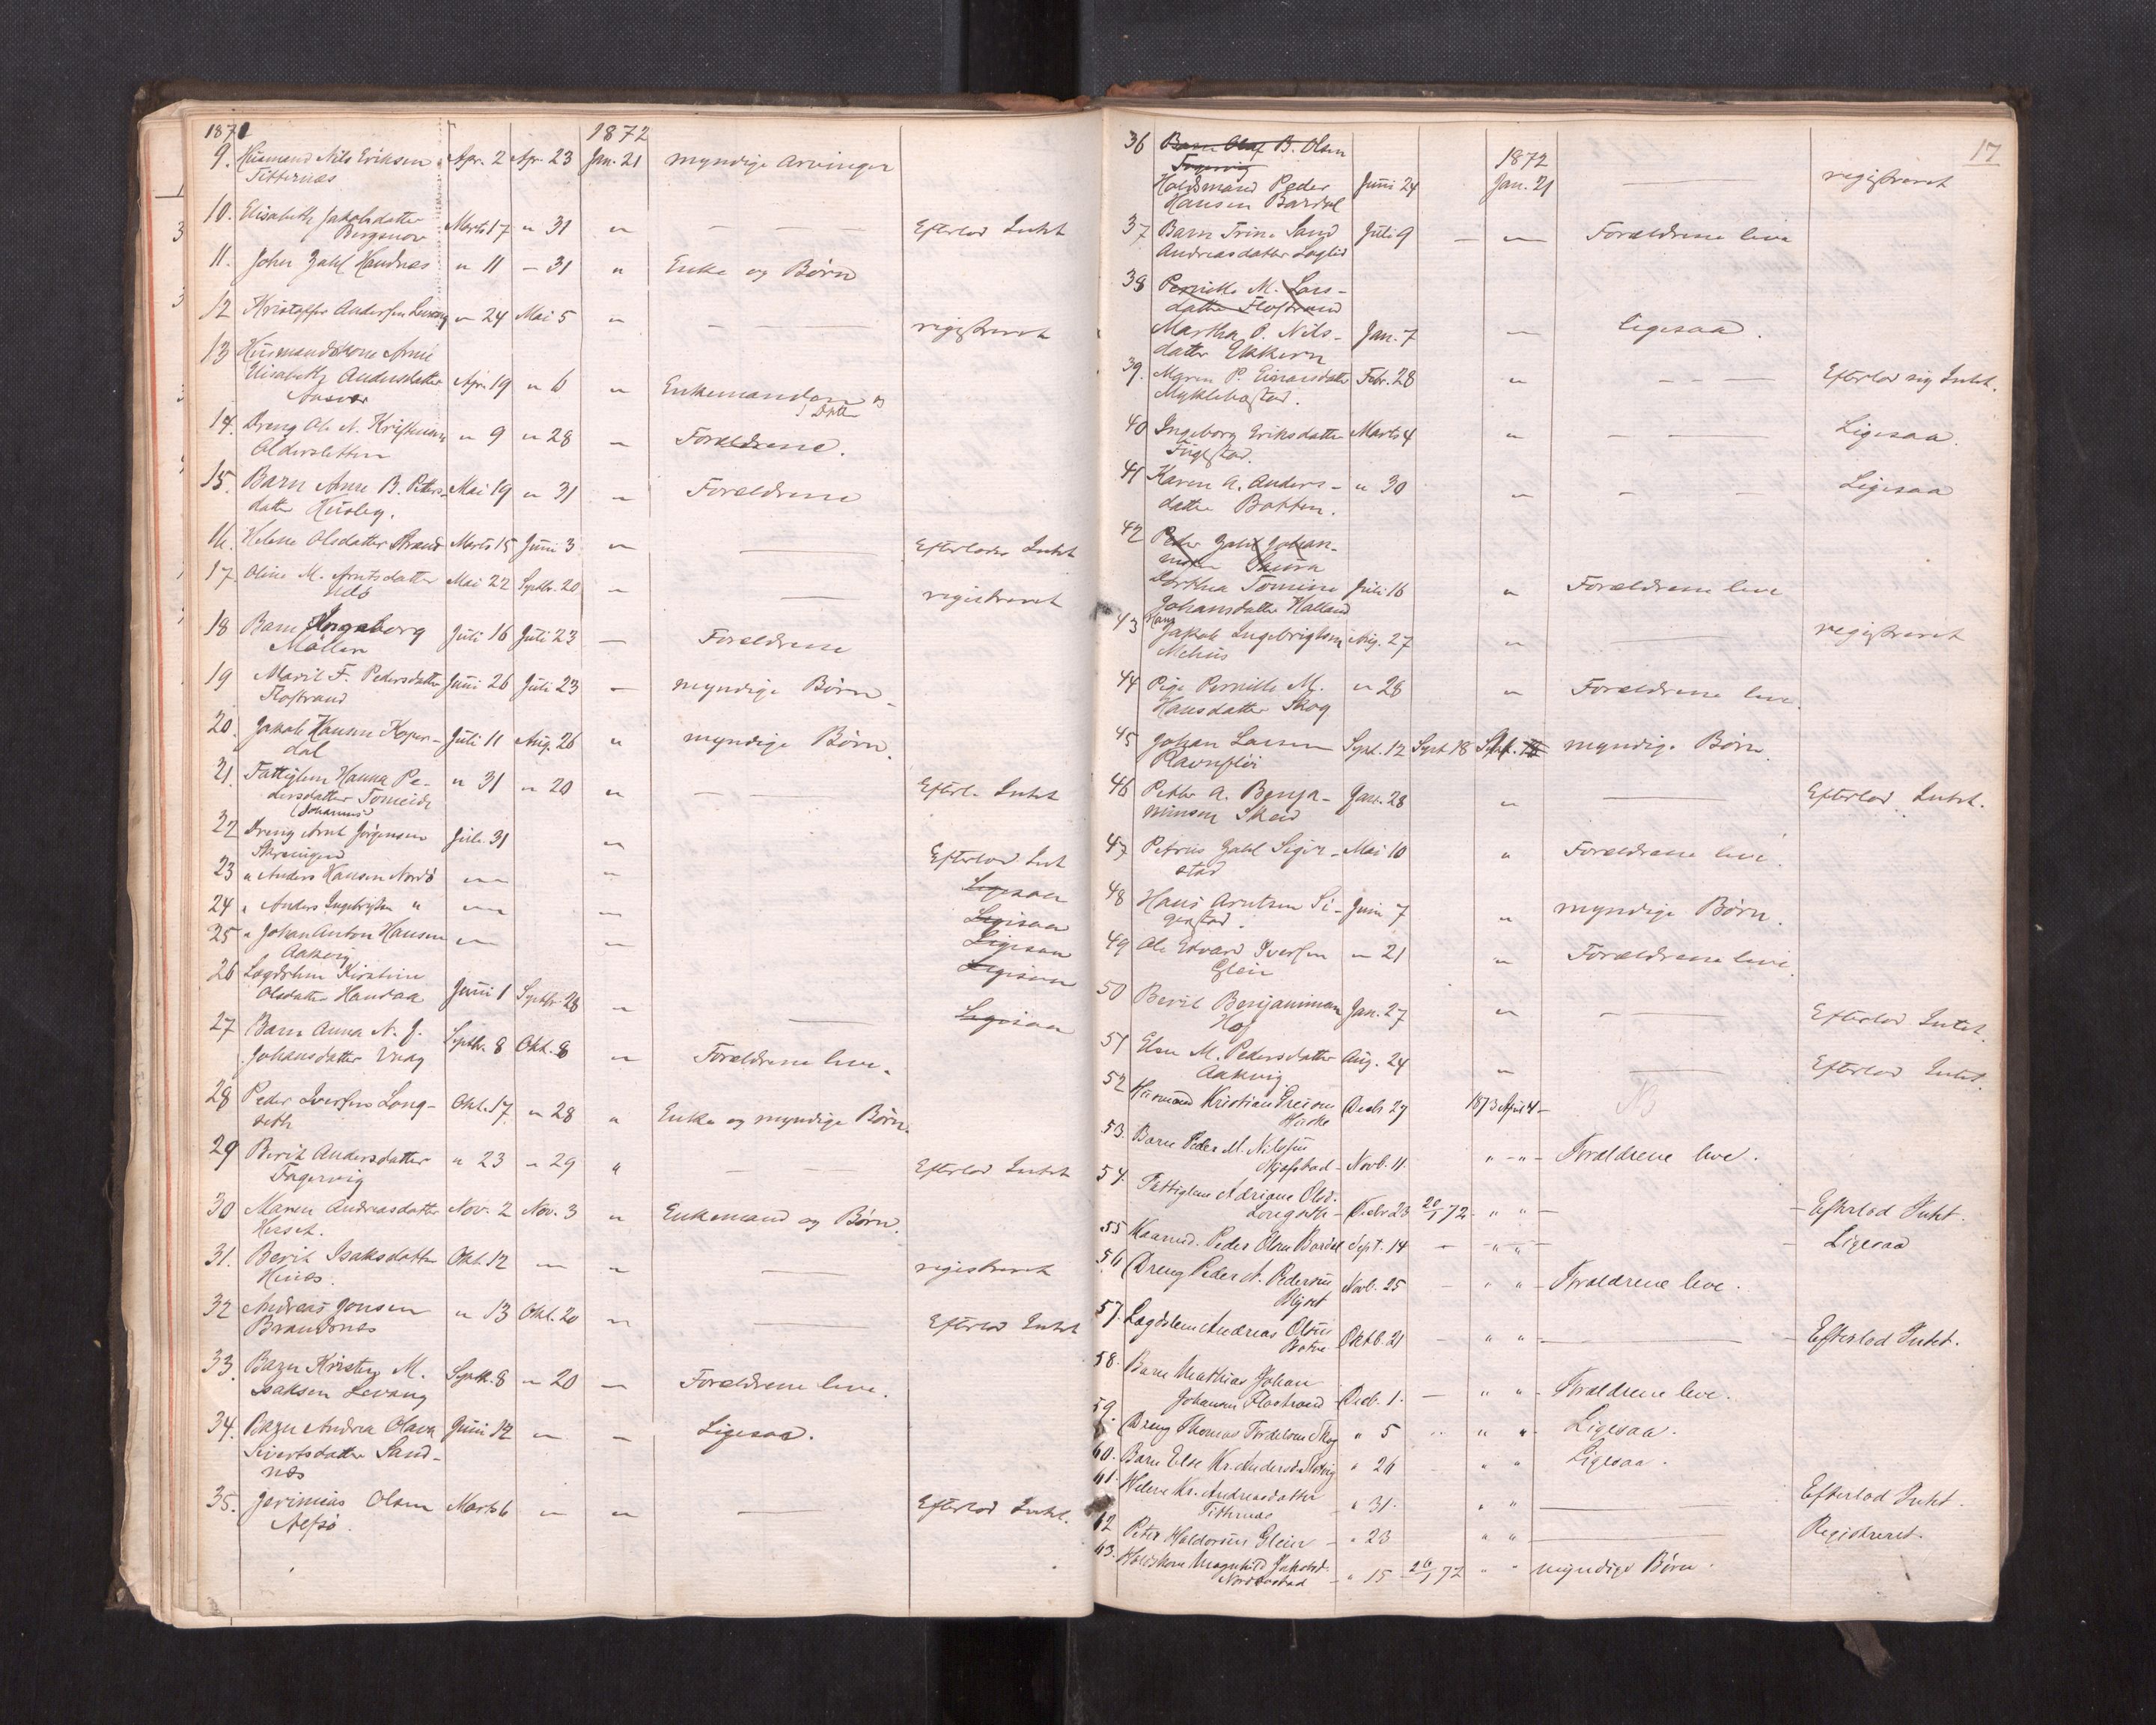 1871 1872
9. Husmand Nils Eriksen Apr. 2 Apr. 23 Jan. 21 myndige Arvinger
Titternes
10. Elisabeth Jakobsdatter Marts 17 " 31 " — — — Efterlod Intet
Bergsnov
11. John Zahl Handnes " 11 — 31 " Enke og Børn
12 Kristoffer Andersen Levang " 24 Mai 5 " — — — registreret
13 Husmandskone Anne
Elisabeth Andersdatter Apr. 19 " 6 " Enkemanden og
Aasvær 1 Datter
14. Dreng Ole N. Kristensen " 9 " 28 " Forældrene.
Aldersletten
15. Barn Anne B. Petters- Mai 19 " 31 " Forældrene
datter Husby.
16. Helene Olsdatter Strand Marts 15 Juni 3 " — Efterlader Intet
17. Oline M. Arntsdatter Mai 22 Septbr. 20 " — registreret
18 Barn Ingeborg Juli 16 Juli 23 — Forældrene
19 Marit F. Pedersdatter Juni 26 Juli 23 — myndige Børn
Flostrand
20. Jakob Hansen Koper- Juli 11 Aug. 26 " myndige Børn.
dal
21. Fattiglem Hanna Pe- " 31 " 20 " — — Efterl. Intet
dersdatter Tomeide
(Johannes)
22 Dreng Arnt Jørgensen Juli 31 " Efterlod Int
23 " Anders Hansen Nordø " " " Ligesaa
24 " Anders Ingebrigtsen " " " " Ligesaa
25 " Johan Anton Hansen " " Ligesaa
Aakvig Ligesaa
26 Lægdslem Kirstine
Olsdatter Handaa Juni 1 Septbr. 28 " — Ligesaa
27 Barn Anna N. J. Septbr. 8 Okt. 8 " Forældrene leve.
Johansdatter
28 Peder Iversen Long- Okt. 17 " 28 " Enke og myndige Børn.
seth
29 Berit Andersdatter " 23 " 29 " — — Efterlod Intet
Fagervig
30 Maren Andreasdatter Nov. 2 Nov. 3 " Enkemand og Børn.
31. Berit Isaksdatter Okt. 12 — " — registreret
32 Andreas Jonsen " 13 Okt. 20 " — Efterlod Intet
Brandsnes
33. Barn Kristen M. Septb. 8 " 20 — Forældrene leve.
Isaksen Levang
34. Barn Andrea Olava Juni 12 " — Ligesaa.
Sivertsdatter Sand-
nes
35. Jerimias Olsen Marts 6 " " — Efterlod Intet.
Alfsø.
17
1872
36 Barn Olaf B. Olsen
Fagervig
Holdsmand Peder Juni 24 Jan. 21 — registreret
Hansen Bardal
37 Barn Trine Sand Juli 9 — " Forældrene leve
Andreasdatter
38 Pernille M. Lars-
datter Flostrand
Martha O. Nils- Jan. 7 " ligesaa.
datter Ekkern
39. Maren P. Einarsdatter Febr. 28 " — — — Efterlod sig Intet.
Myklebostad.
40 Ingeborg Eriksdatter Marts 4 " — — Ligesaa.
Fuglstad.
41 Karen A. Anders- " 30 " — — Ligesaa
datter Botten.
42 Peder Zahl Johan-
nesen Saura
Dorthea Tomine Juli 16 " Forældrene leve
Johansdatter Halland
43 Hans
Jakob Ingebrigtsen Aug. 27 " — registreret
Mehus
44 Pige Pernille M. " 28 " Forældrene leve.
Hansdatter Skog
45 Johan Larsen Sept. 12 Sept 18 Sept. 18 myndige Børn.
Ravnfloi
46 Petter A. Benja- Jan. 28 " — Efterlod Intet.
minsen Skeid
47 Petrus Zahl Siger- Mai 10 " Forældrene leve.
stad
48 Hans Arntsen Si- Juni 7 " myndige Børn.
gerstad.
49 Ole Edvard Iversen " 21 " Forældrene leve.
Glein
50 Berit Benjaminsen Jan. 27 " — — Efterlod Intet.
Hof
51 Elen M. Pedersdatter Aug. 24 " — Efterlod Intet.
Aakvig
52 Husmand Kristian Decbr 27 1873 April 4 — NB
53. Barn Peder M. Nilssen
— Novb. 11. " " — Forældrene leve.
54. Fattiglem Adriane Olsd.
Longseth — Decbr 23 20/1 72 — " " — — Efterlod Intet.
55 Peder Olsen Bardal Sept. 14 — " " — Ligesaa
56. Dreng Peder A. Pedersen Novb. 25 — " " — Forældrene leve.
57. Lægdslem Andreas Olsen Oktb. 21 — " " — — Efterlod Intet.
58. Barn Mathias Johan
Johansen Flostrand — Decb. 1. — " " — Forældrene leve.
59. Dreng Thomas Tordelsen Skog " 5 — " " Ligesaa.
60. Barn Else Kr. Andersd. " 26 — " " Ligesaa.
61. Helene Kr. Andreasdatter
Titternes — " 31. " " — Efterlod Intet.
62 Peter Haldorsen Glein — " 23 " " — Registreret.
63. Holdskone Magnhild Jakobsd.
Nordbostad — " 15 26/1 72 " " myndige Børn.